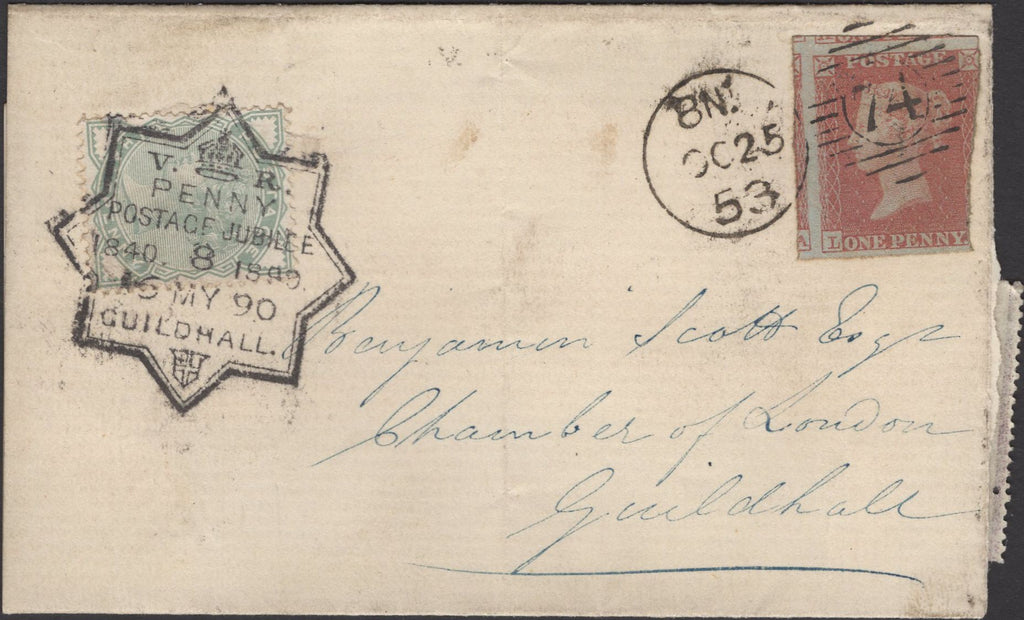 V. R.
PENNY
POSTAGE JUBILEE
1840. 8 1890.
16 MY 90
GUILDHALL.
8N.
OC25
53
POSTAGE
74
L ONE PENNY
A
Benjamin Scott Esqr
Chamber of London
Guildhall